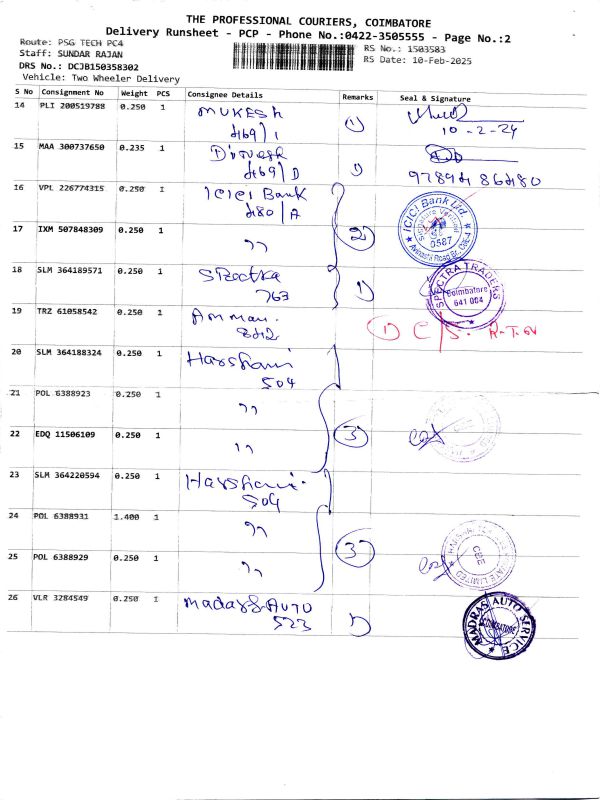 THE PROFESSIONAL COURIERS, COIMBATORE
Delivery Runsheet - PCP - Phone No.:0422-3505555 - Page No.:2
Route: PSG TECH PC4
RS No.: 1503583
Staff: SUNDAR RAJAN
RS Date: 10-Feb-2025
DRS No.: DCJB150358302
Vehicle: Two Wheeler Delivery
S No Consignment No Weight PCS Consignee Details Remarks Seal & Signature
14 PLI 200519788 0.250 1 MUKESH
469/1 1) 10-2-24
15 MAA 300737650 0.235 1 Dinesh
469/D 1) 9789486480
16 VPL 226774315 0.250 1 ICICI Bank
480/A
ICICI Bank Ltd.
Signature Verified
0587
Avinashi Road Br. CBE-1
17 IXM 507848309 0.250 1 " 2
18 SLM 364189571 0.250 1 Spectra
763 1)
SPECTRA TRADERS
Coimbatore
641 004
19 TRZ 61058542 0.250 1 Amman
842 1) C/S. R-T-O
20 SLM 364188324 0.250 1 Harshani
504
21 POL 6388923 0.250 1 "
22 EDQ 11506109 0.250 1 " 3
CBE
23 SLM 364220594 0.250 1 Harshani
504
24 POL 6388931 1.400 1 "
25 POL 6388929 0.250 1 " 3
CBE
PRIVATE LIMITED
26 VLR 3284549 0.250 1 Madars AUTO
523 1)
MADRAS AUTO SERVICE
COIMBATORE